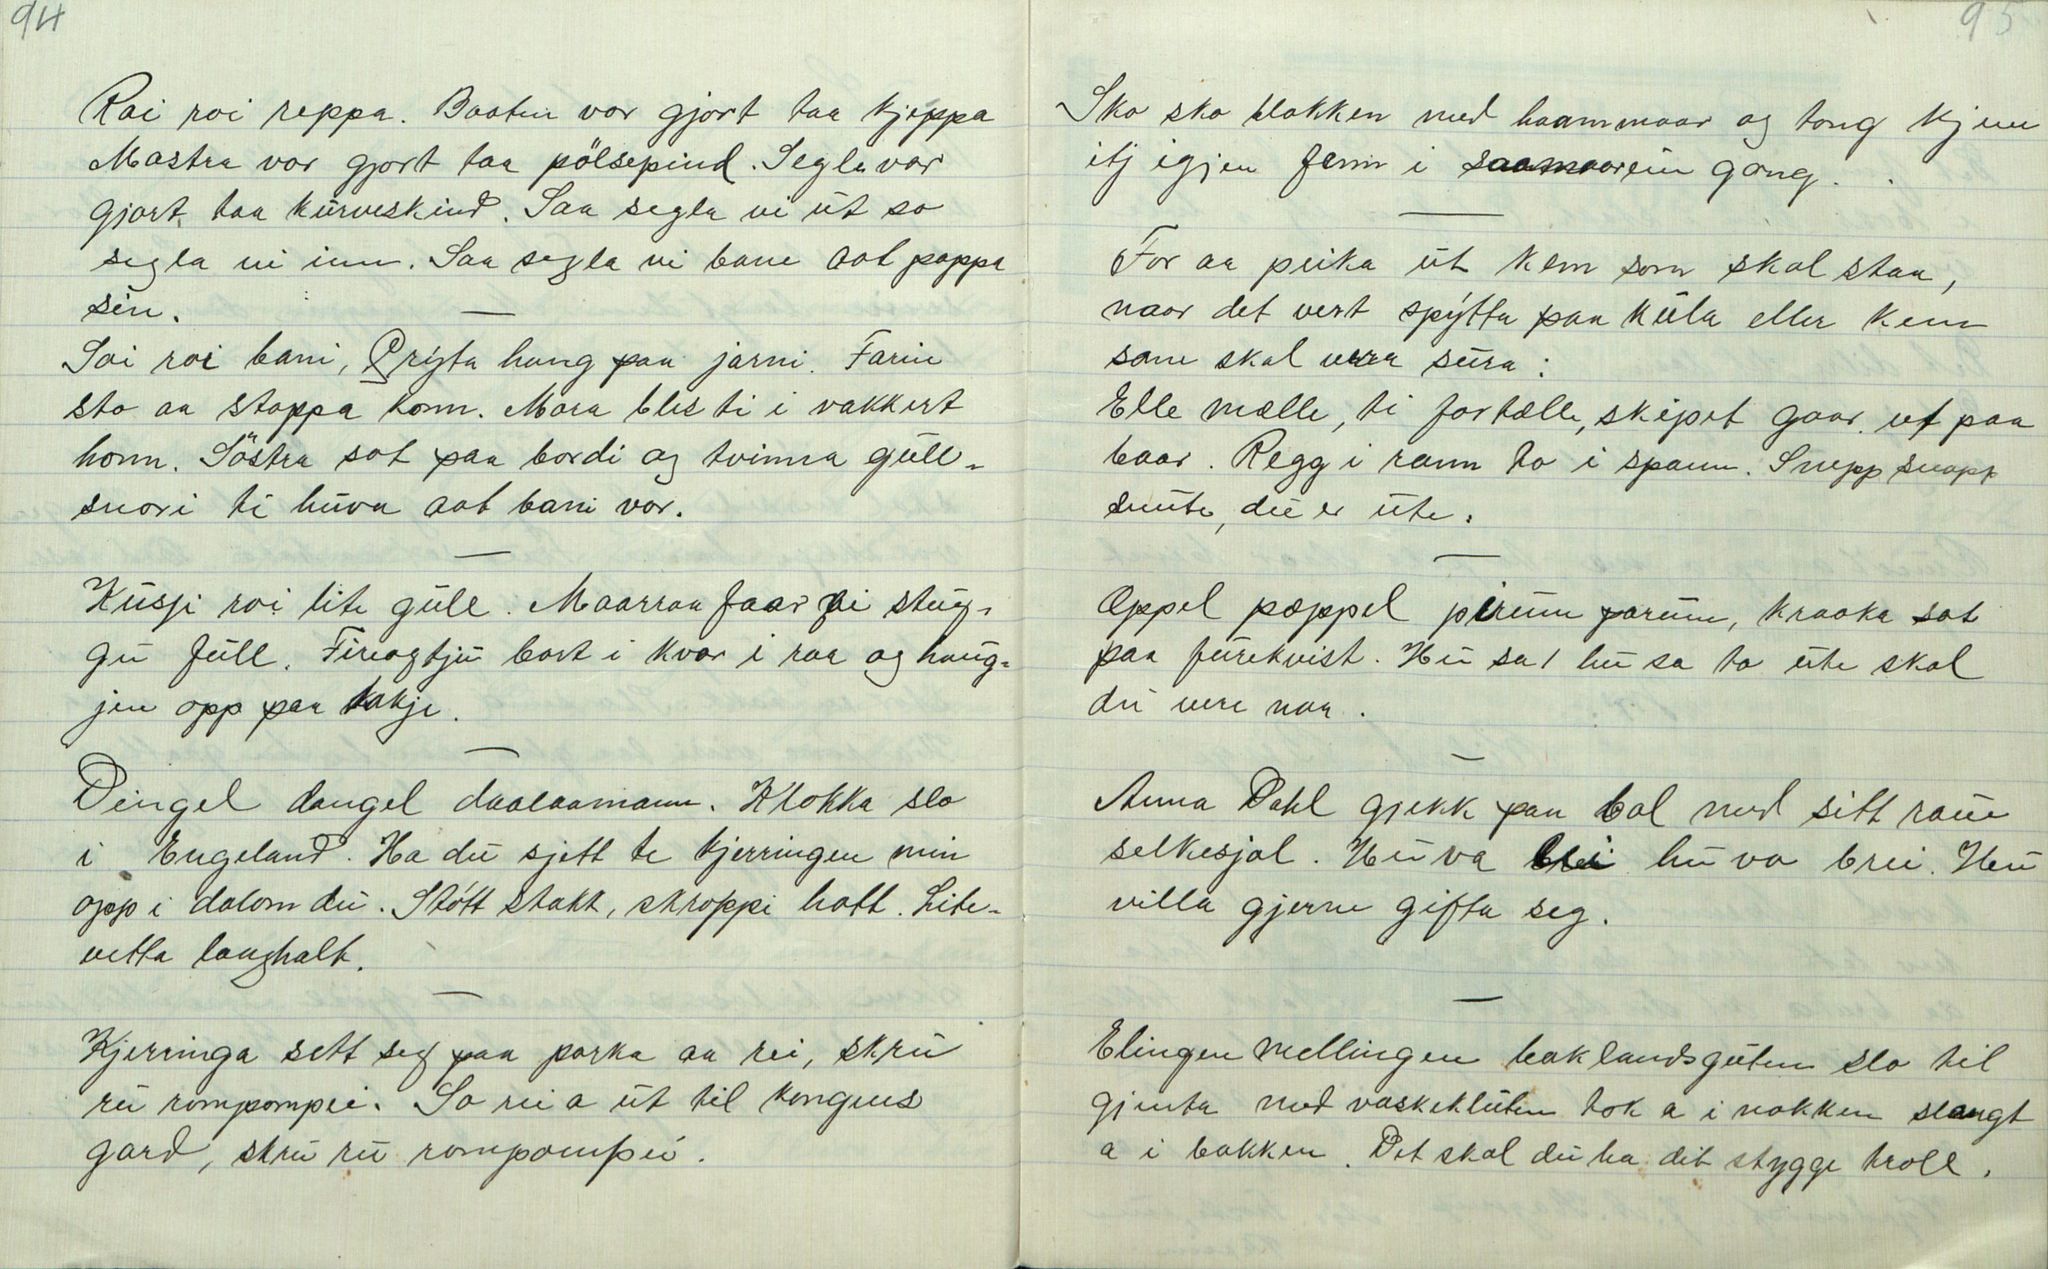 94
Roi roi reppa. Baaten var gjort taa kjeppa
Mastra var gjort taa pölsepind. Segla var
gjort taa kurveskind. Saa segla vi ut so
segla vi inn. Saa segla vi bane aat pappa
sin.
Soi roi bani, Gryta hang paa jarni. Farin
sto aa stappa konn. Mora bles ti i vakkert
honn. Söstra sat paa bordi og tvinna gull-
snori ti huva aat bani vor.
Kussji roi lite gull. Maarraa faar vi stug-
gu full. Fireogtju bort i kvar i raa og haug-
jen opp paa takje.
Dingel dangel daalaamann. Klokka slo
i Engeland. Ha du sjett te kjerringen min
opp i dalom du. Stótt stakk, skroppi hatt. Lite-
vetta langhalt.
Kjerringa sett seg paa purka aa rei, skru
ru rompompei. So rei a ut til kongens
gard, skru ru rompompei.
95
Sko sko blakken med haammaar og tong kjem
itj igjen fem i saamaarein gong.
For aa peika ut kem som skal staa,
naar det vert spýtta paa kula eller kem
som skal vera sura:
Elle mælle, ti fortælle, skipet gaar ut paa
baar. Regg i rann to i spann. Snipp snapp
snute, du er ute.
Oppel poppel pirum parum, kraaka sat
paa furekvist. Hu sa 1 hu sa to ute skal
du vere naa.
Anna Dahl gjekk paa bal med sitt raue
selkesjal. Hu va brei hu va brei. Hu
villa gjerne gifta seg.
Elingen mellingen baklandsguten slo til
gjenta med vaskekluten tok a i nakken slængt
a i bakken. Det skal du ha dit stygge troll.